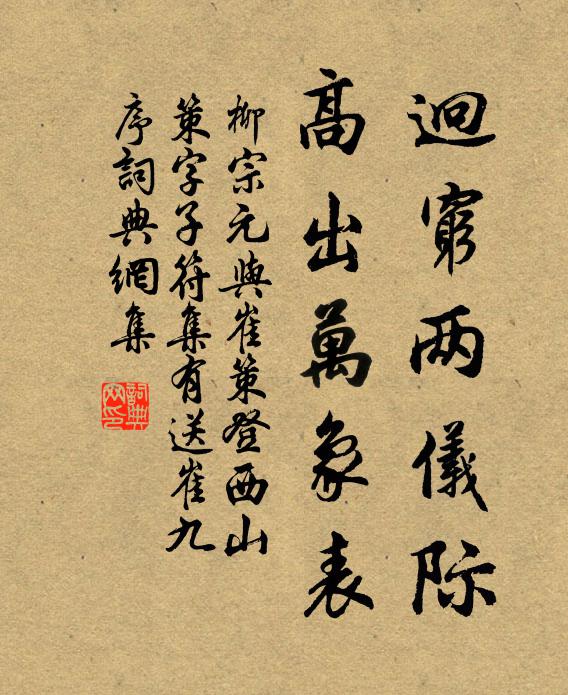 迥窮两儀际
高出萬象表
柳宗元與崔策登西山
策字子符集有送崔九
序詞典網集
詞典网印